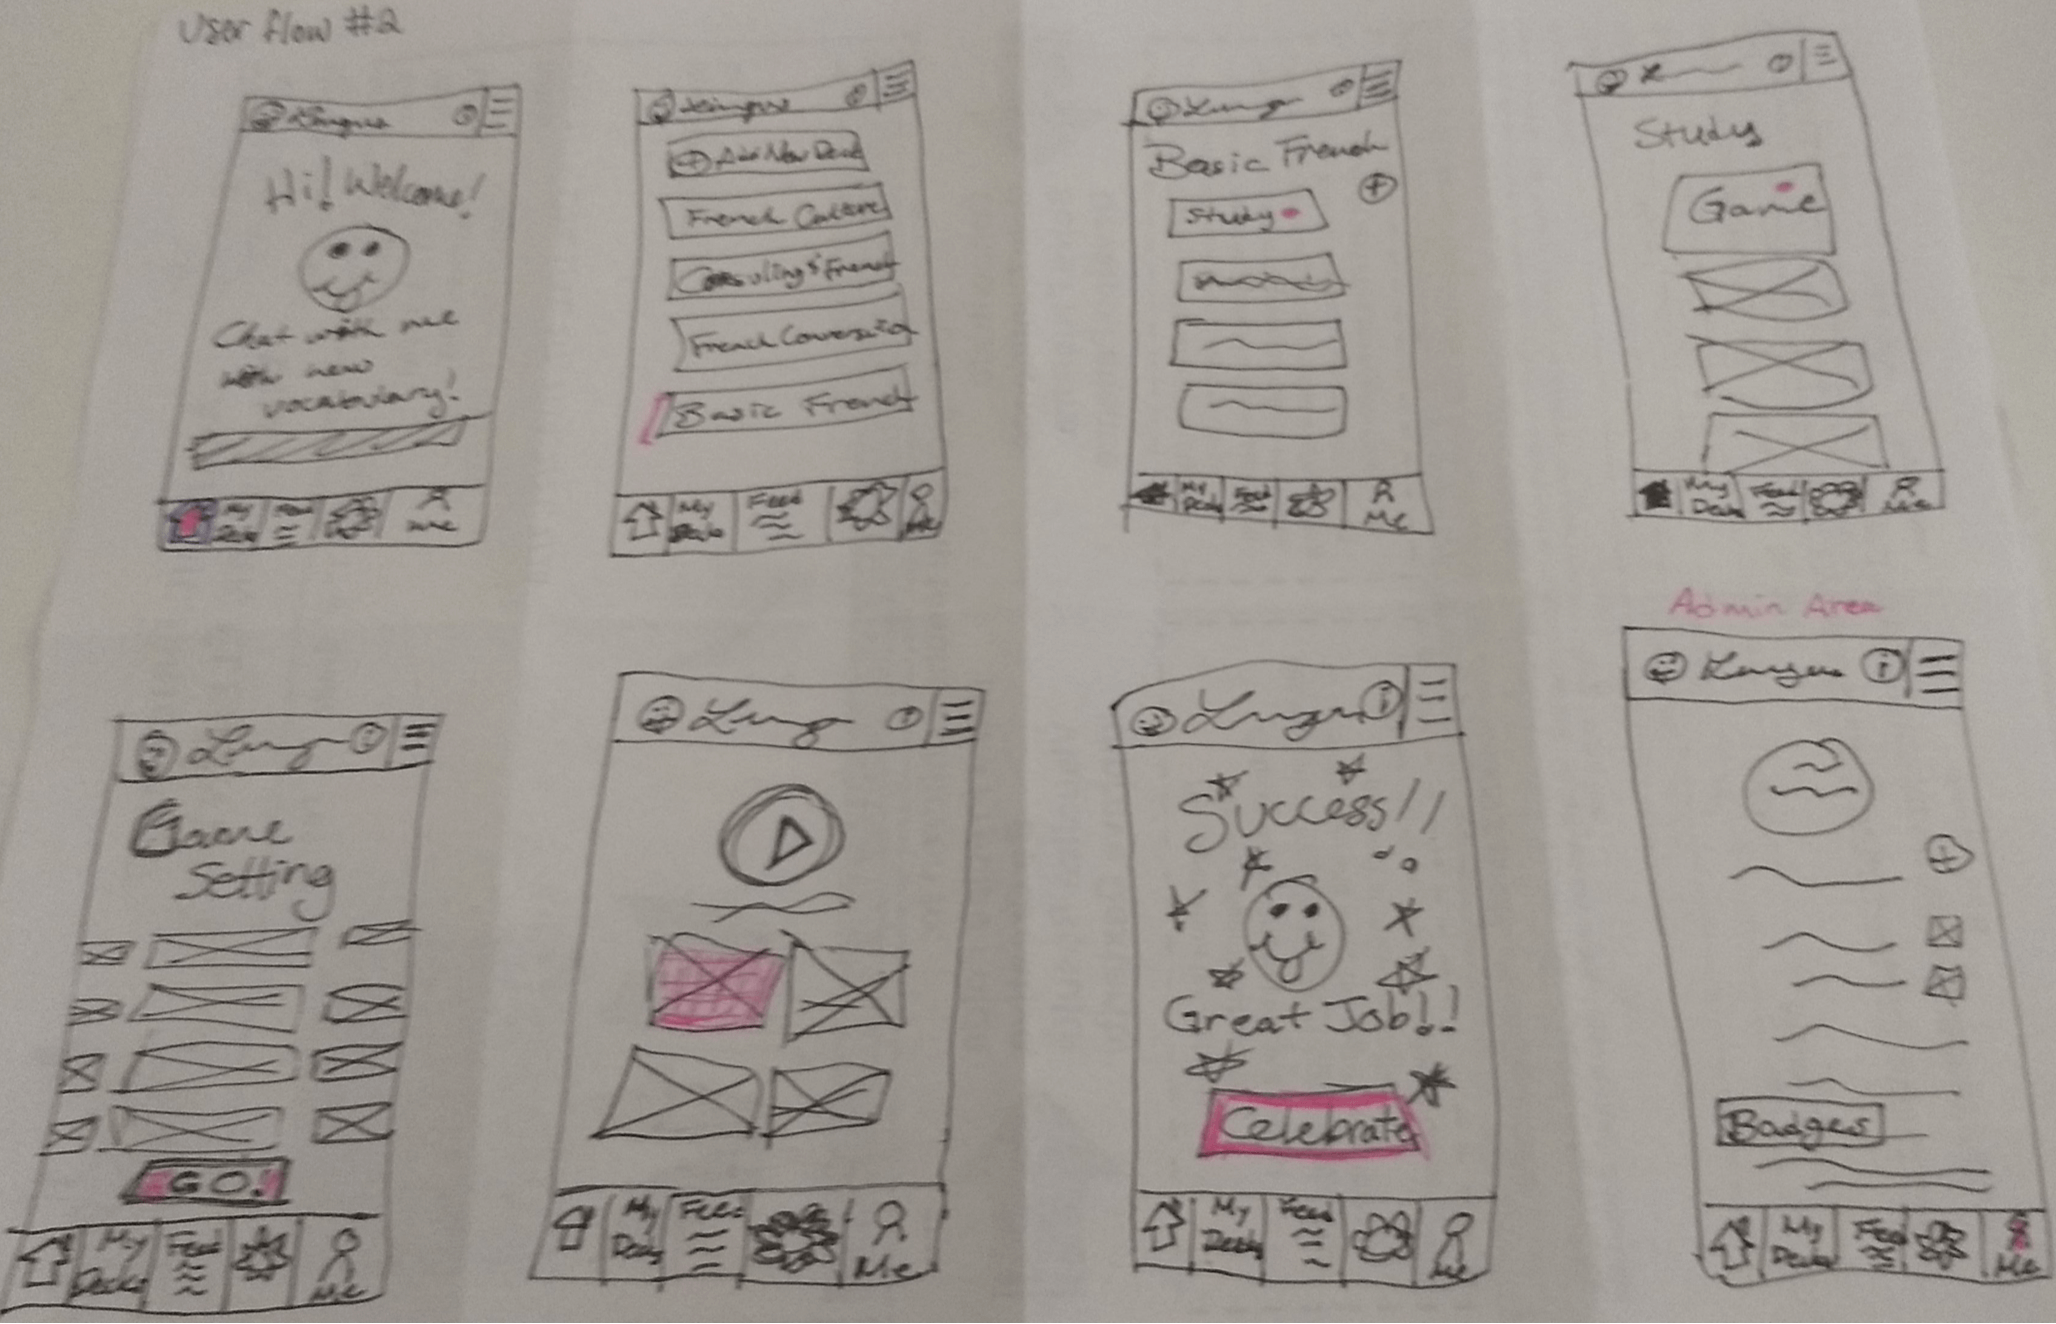 User flow #2
Hi! Welcome!
Chat with me
with new
vocabulary!
My
Feed
me
Add New Deck
French Culture
French
French Conversation
Basic French
My
Decks
Feed
Me
Basic French
Study
My
Decks
Feed
Me
Study
Game
My
Decks
Feed
Me
Game
Setting
GO!
My
Decks
Feed
Me
My
Decks
Feed
Me
Success!!
Great Job!!
Celebrate
My
Decks
Feed
Me
Admin Area
Badges
My
Decks
Feed
Me